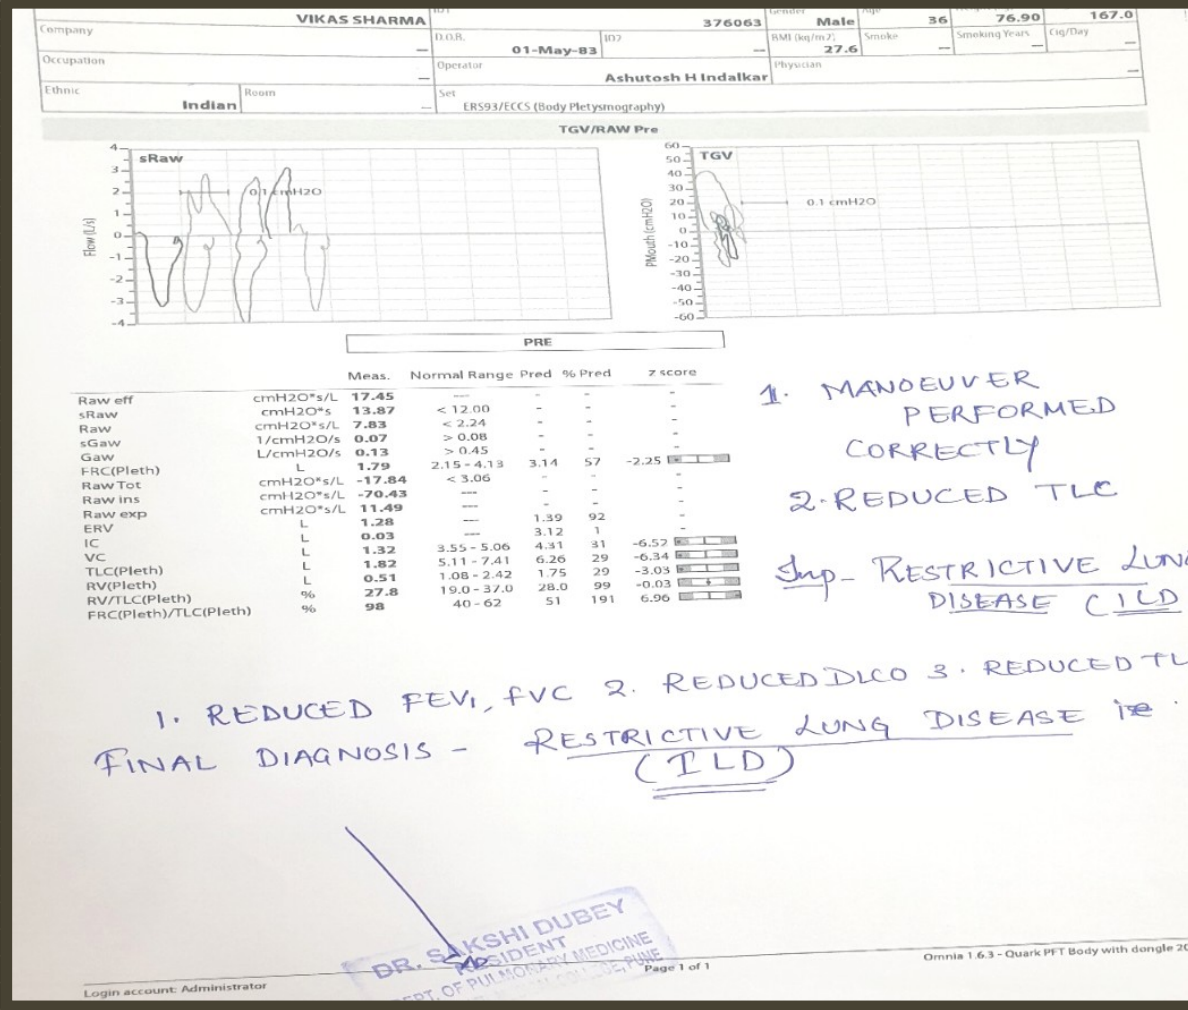 VIKAS SHARMA 376063 Gender Male 36 76.90 167.0
Company D.O.B. 01-May-83 ID2 BMI (kg/m2) 27.6 Smoke Smoking Years Cig/Day
Occupation Operator Ashutosh H Indalkar Physician
Ethnic Indian Room Set ERS93/ECCS (Body Pletysmography)
TGV/RAW Pre
sRaw
4
3
2
1
0
-1
-2
-3
-4
Flow (L/s)
0.1 cmH2O
TGV
60
50
40
30
20
10
0
-10
-20
-30
-40
-50
-60
PMouth (cmH2O)
0.1 cmH2O
PRE
Meas. Normal Range Pred % Pred z score
Raw eff cmH2O*s/L 17.45 ---- - - -
sRaw cmH2O*s 13.87 < 12.00 - - -
Raw cmH2O*s/L 7.83 < 2.24 - - -
sGaw 1/cmH2O/s 0.07 > 0.08 - - -
Gaw L/cmH2O/s 0.13 > 0.45 - - -
FRC(Pleth) L 1.79 2.15 - 4.13 3.14 57 -2.25
Raw Tot cmH2O*s/L -17.84 < 3.06 - - -
Raw ins cmH2O*s/L -70.43 ---- - - -
Raw exp cmH2O*s/L 11.49 ---- - - -
ERV L 1.28 ---- 1.39 92 -
IC L 0.03 ---- 3.12 1 -
VC L 1.32 3.55 - 5.06 4.31 31 -6.52
TLC(Pleth) L 1.82 5.11 - 7.41 6.26 29 -6.34
RV(Pleth) L 0.51 1.08 - 2.42 1.75 29 -3.03
RV/TLC(Pleth) % 27.8 19.0 - 37.0 28.0 99 -0.03
FRC(Pleth)/TLC(Pleth) % 98 40 - 62 51 191 6.96
1. MANOEUVER
PERFORMED
CORRECTLY
2. REDUCED TLC
Imp - RESTRICTIVE LUNG
DISEASE (ILD
1. REDUCED FEV1, FVC 2. REDUCED DLCO 3. REDUCED TL
FINAL DIAGNOSIS - RESTRICTIVE LUNG DISEASE ie
(ILD)
DR. SAKSHI DUBEY
RESIDENT
DEPT. OF PULMONARY MEDICINE
PUNE
Page 1 of 1
Omnia 1.6.3 - Quark PFT Body with dongle 20
Login account: Administrator